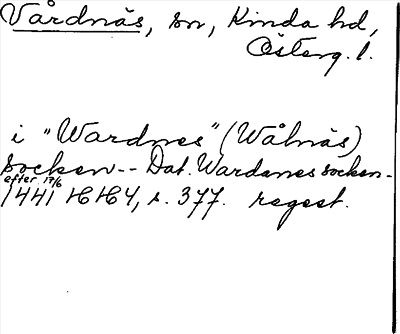 Vårdnäs, sn, Kinda hd,
Österg. l.
i "Wardnes" (Wålnäs)
socken -- Dat. Wardenes socken -
efter 17/6
1441 HH 4, s. 377. regest.